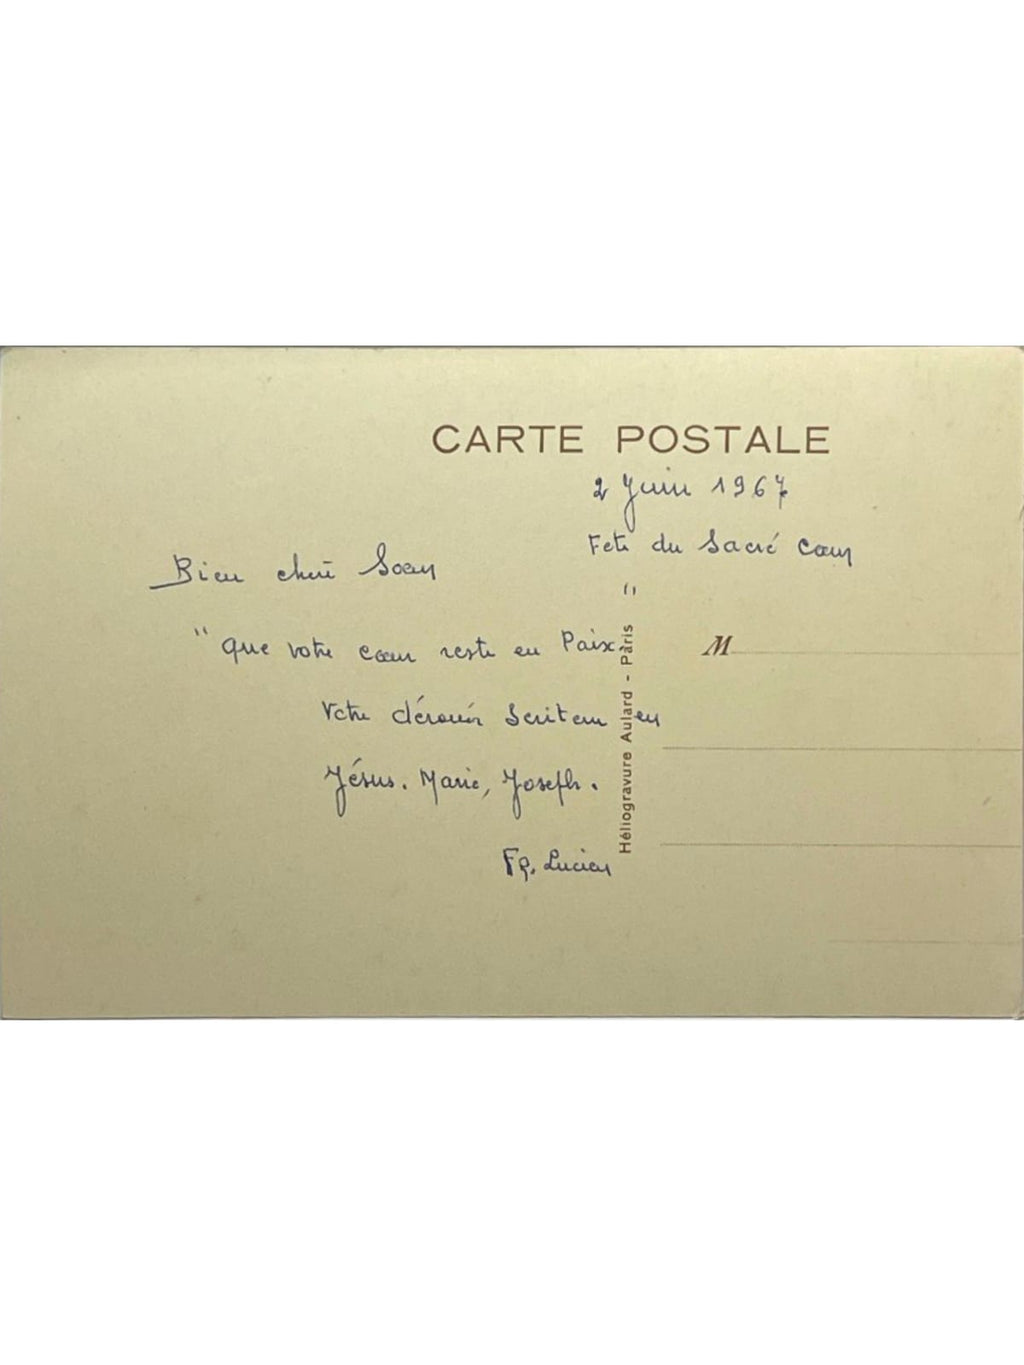 CARTE POSTALE
2 Juin 1967
Fête du Sacré Cœur
Bien chère Soeur
" que votre cœur reste en Paix. "
Votre dévoué Serviteur en
Jésus. Marie, Joseph.
FR. Lucien
Héliogravure Aulard - Paris
M